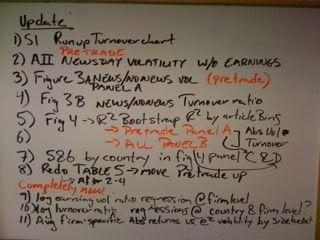 Update
1) S1 Runup Turnover chart
PRETRADE
2) AII NEWSDAY VOLATILITY W/O EARNINGS
3) Figure 3A NEWS/NONEWS VOL (pretrade)
PANEL A
4) Fig 3B NEWS/NONEWS Turnover ratio
5) Fig 4 → R² Bootstrap R² by article Bins
6) → Pretrade Panel A } Abs Vol
→ ALL PANEL B } Turnover
7) S26 by country in fig 4 panel C & D
8) Redo TABLE 5 → move Pretrade up
2-4
Completely new
9) log earning vol ratio regression @ firm level
10) log turnover ratio regressions @ country & firm level?
11) Avg firm-specific Abs returns vs e² volatility by